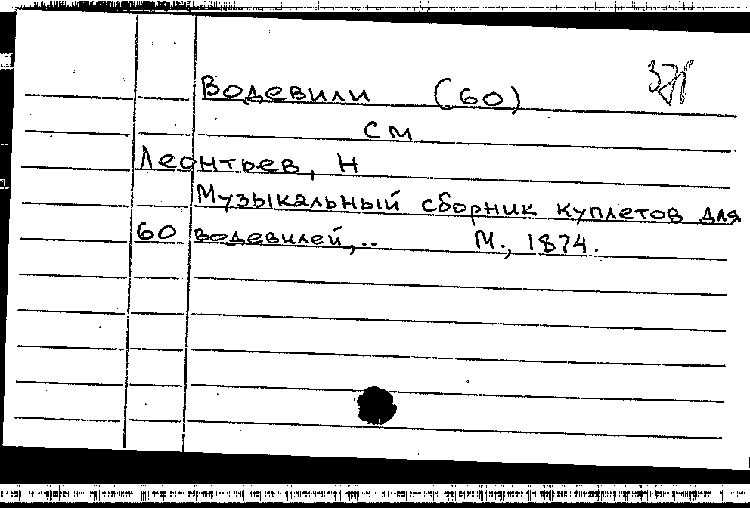 Водевили (60)
см
Леонтьев, Н
Музыкальный сборник куплетов для
60 водевилей,..  М., 1874.